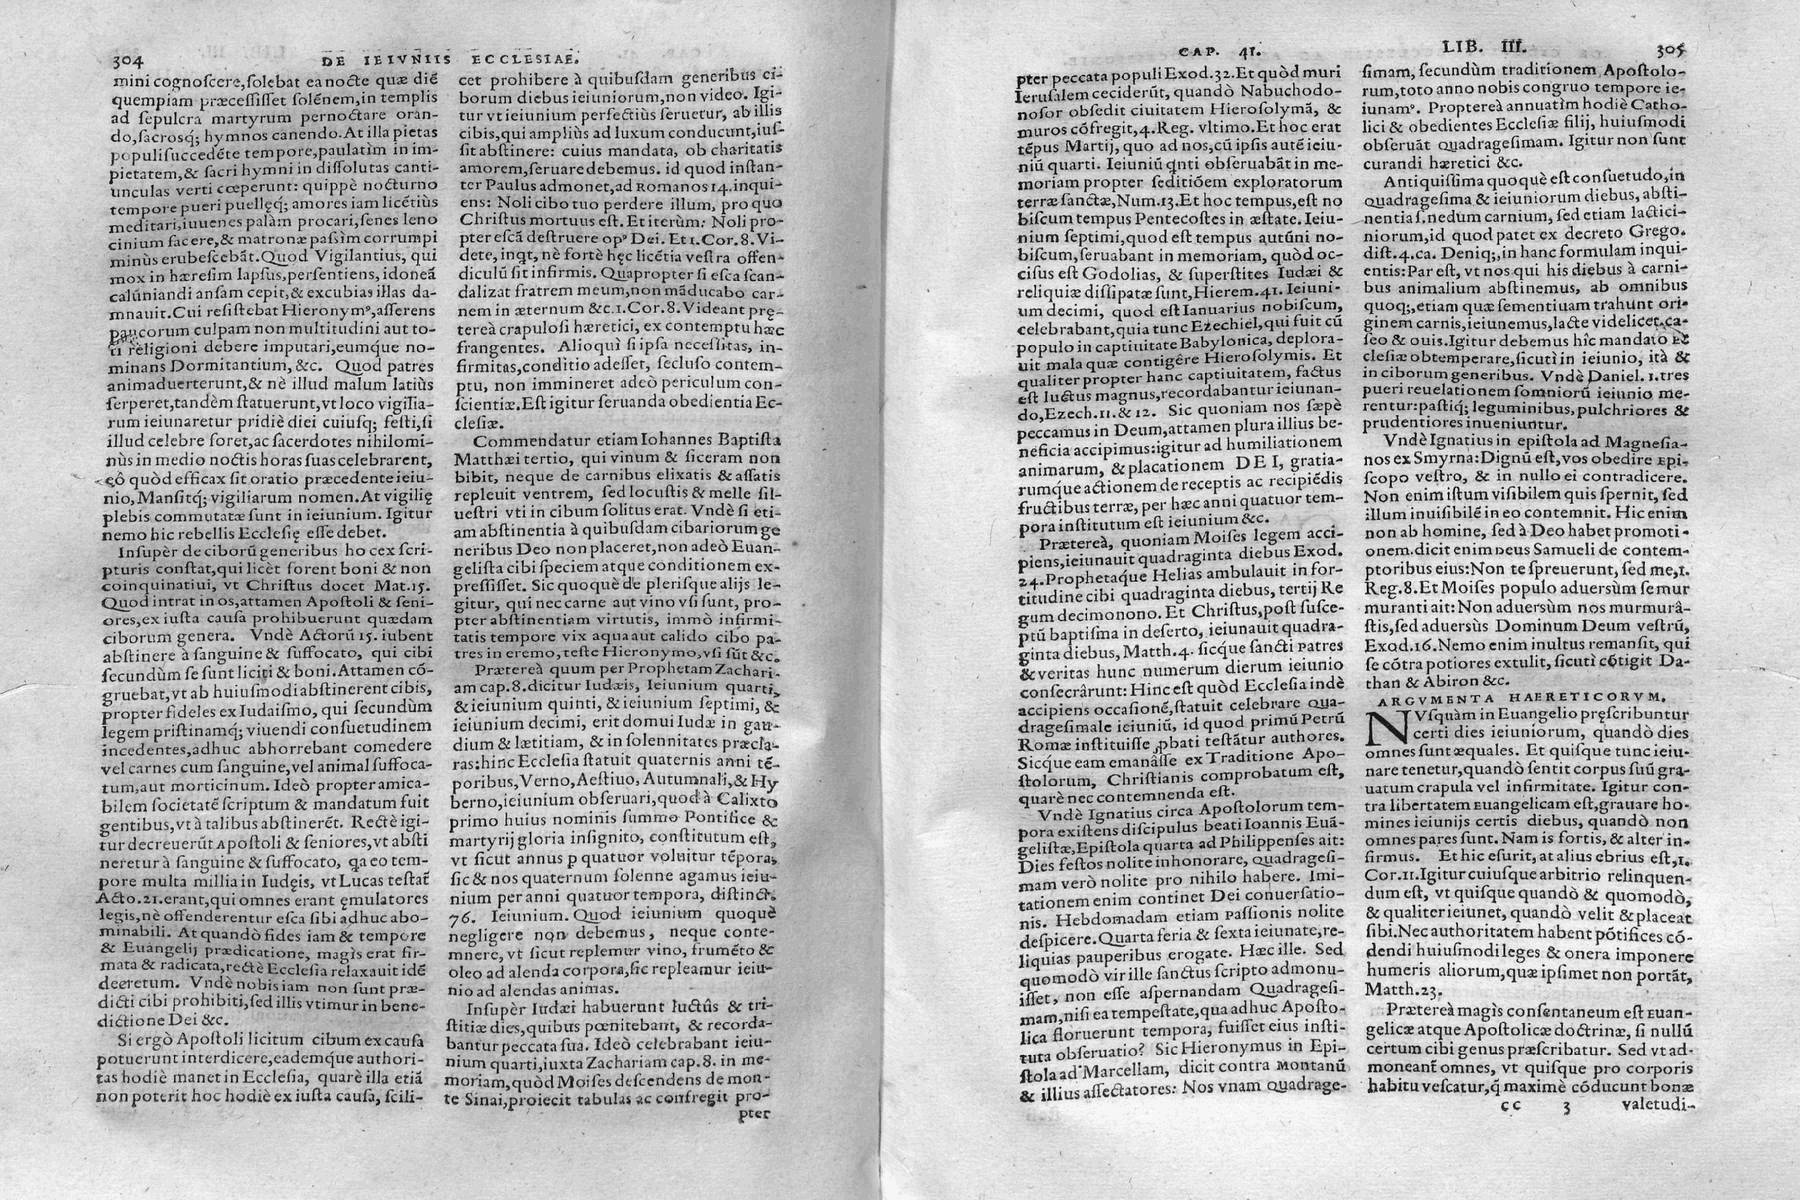 304
DE IEIVNIIS ECCLESIAE.
mini cognoscere, solebat ea nocte quæ diē
quempiam præcessisset solēnem, in templis
ad sepulcra martyrum pernoctare oran-
do, sacrosq; hymnos canendo. At illa pietas
populi succedēte tempore, paulatìm in im-
pietatem, & sacri hymni in dissolutas canti-
unculas verti cœperunt: quippè nocturno
tempore pueri puellęq; amores iam licētiùs
meditari, iuuenes palàm procari, senes leno
cinium facere, & matronæ passìm corrumpi
minùs erubescebāt. Quod Vigilantius, qui
mox in hæresim lapsus, persentiens, idoneā
calūniandi ansam cepit, & excubias illas da-
mnauit. Cui resistebat Hieronymꝰ, asserens
paucorum culpam non multitudini aut to-
ti religioni debere imputari, eumq́ue no-
minans Dormitantium, &c. Quod patres
animaduerterunt, & nè illud malum latiùs
serperet, tandèm statuerunt, vt loco vigilia-
rum ieiunaretur pridiè diei cuiusq; festi, si
illud celebre foret, ac sacerdotes nihilomi-
nùs in medio noctis horas suas celebrarent,
eô quòd efficax sit oratio præcedente ieiu-
nio, Mansitq; vigiliarum nomen. At vigilię
plebis commutatæ sunt in ieiunium. Igitur
nemo hic rebellis Ecclesię esse debet.
Insupèr de ciborū generibus ho cex scri-
pturis constat, qui licèt forent boni & non
coinquinatiui, vt Christus docet Mat. 15.
Quod intrat in os, attamen Apostoli & seni-
ores, ex iusta causa prohibuerunt quædam
ciborum genera. Vndè Actorū 15. iubent
abstinere à sanguine & suffocato, qui cibi
secundùm se sunt liciti & boni. Attamen cō-
gruebat, vt ab huiusmodi abstinerent cibis,
propter fideles ex Iudaismo, qui secundùm
legem pristinamq; viuendi consuetudinem
incedentes, adhuc abhorrebant comedere
vel carnes cum sanguine, vel animal suffoca-
tum, aut morticinum. Ideò propter amica-
bilem societatē scriptum & mandatum fuit
gentibus, vt à talibus abstinerēt. Rectè igi-
tur decreuerūt Apostoli & seniores, vt absti
neretur à sanguine & suffocato, ꝗa eo tem-
pore multa millia in Iudęis, vt Lucas testat̃
Acto. 21. erant, qui omnes erant ęmulatores
legis, nè offenderentur esca sibi adhuc abo-
minabili. At quandò fides iam & tempore
& Euangelij prædicatione, magìs erat fir-
mata & radicata, rectè Ecclesia relaxauit idē
decretum. Vndè nobis iam non sunt præ-
dicti cibi prohibiti, sed illis vtimur in bene-
dictione Dei &c.
Si ergò Apostoli licitum cibum ex causa
potuerunt interdicere, eademque authori-
tas hodiè manet in Ecclesia, quarè illa etiā
non poterit hoc hodiè ex iusta causa, scili-
cet prohibere à quibusdam generibus ci-
borum diebus ieiuniorum, non video. Igi-
tur vt ieiunium perfectiùs seruetur, ab illis
cibis, qui ampliùs ad luxum conducunt, ius-
sit abstinere: cuius mandata, ob charitatis
amorem, seruare debemus. id quod instan-
ter Paulus admonet, ad Romanos 14. inqui-
ens: Noli cibo tuo perdere illum, pro quo
Christus mortuus est. Et iterùm: Noli pro-
pter escā destruere opꝰ Dei. Et 1. Cor. 8. Vi-
dete, inqt, nè fortè hęc licētia vestra offen-
diculū sit infirmis. Quapropter si esca scan-
dalizat fratrem meum, non māducabo car-
nem in æternum &c. 1. Cor. 8. Videant prę-
tereà crapulosi hæretici, ex contemptu hæc
frangentes. Alioquì si ipsa necessitas, in-
firmitas, conditio adesset, secluso contem-
ptu, non immineret adeò periculum con-
scientiæ. Est igitur seruanda obedientia Ec-
clesiæ.
Commendatur etiam Iohannes Baptista
Matthæi tertio, qui vinum & siceram non
bibit, neque de carnibus elixatis & assatis
repleuit ventrem, sed locustis & melle sil-
uestri vti in cibum solitus erat. Vndè si eti-
am abstinentia à quibusdam cibariorum ge
neribus Deo non placeret, non adeò Euan-
gelista cibi speciem atque conditionem ex-
pressisset. Sic quoquè de plerisque alijs le-
gitur, qui nec carne aut vino vsi sunt, pro-
pter abstinentiam virtutis, immò infirmi-
tatis tempore vix aqua aut calido cibo pa-
tres in eremo, teste Hieronymo, vsi sūt &c.
Prætereà quum per Prophetam Zachari-
am cap. 8. dicitur Iudæis, Ieiunium quarti,
& ieiunium quinti, & ieiunium septimi, &
ieiunium decimi, erit domui Iudæ in gau-
dium & lætitiam, & in solennitates præcla-
ras: hinc Ecclesia statuit quaternis anni tē-
poribus, Verno, Aestiuo, Autumnali, & Hy
berno, ieiunium obseruari, quod à Calixto
primo huius nominis summo Pontifice &
martyrij gloria insignito, constitutum est,
vt sicut annus p quatuor voluitur tēpora,
sic & nos quaternum solenne agamus ieiu-
nium per anni quatuor tempora, distinct.
76. Ieiunium. Quod ieiunium quoquè
negligere non debemus, neque conte-
mnere, vt sicut replemur vino, frumēto &
oleo ad alenda corpora, sic repleamur ieiu-
nio ad alendas animas.
Insupèr Iudæi habuerunt luctûs & tri-
stitiæ dies, quibus pœnitebant, & recorda-
bantur peccata sua. Ideò celebrabant ieiu-
nium quarti, iuxta Zachariam cap. 8. in me-
moriam, quòd Moises descendens de mon-
te Sinai, proiecit tabulas ac confregit pro-
pter
CAP. 41.
LIB. III.
305
pter peccata populi Exod. 32. Et quòd muri
Ierusalem ceciderūt, quandò Nabuchodo-
nosor obsedit ciuitatem Hierosolymā, &
muros cōfregit, 4. Reg. vltimo. Et hoc erat
tēpus Martij, quo ad nos, cū ipsis autē ieiu-
niū quarti. Ieiuniū qnti obseruabāt in me-
moriam propter seditiōem exploratorum
terræ sanctæ, Num. 13. Et hoc tempus, est no
biscum tempus Pentecostes in æstate. Ieiu-
nium septimi, quod est tempus autūni no-
biscum, seruabant in memoriam, quòd oc-
cisus est Godolias, & superstites Iudæi &
reliquiæ dissipatæ sunt, Hierem. 41. Ieiuni-
um decimi, quod est Ianuarius nobiscum,
celebrabant, quia tunc Ezechiel, qui fuit cū
populo in captiuitate Babylonica, deplora-
uit mala quæ contigêre Hierosolymis. Et
qualiter propter hanc captiuitatem, factus
est luctus magnus, recordabantur ieiunan-
do, Ezech. 11. & 12. Sic quoniam nos sæpè
peccamus in Deum, attamen plura illius be-
neficia accipimus: igitur ad humiliationem
animarum, & placationem DEI, gratia-
rumque actionem de receptis ac recipiēdis
fructibus terræ, per hæc anni quatuor tem-
pora institutum est ieiunium &c.
Prætereà, quoniam Moises legem acci-
piens, ieiunauit quadraginta diebus Exod.
24. Prophetaq́ue Helias ambulauit in for-
titudine cibi quadraginta diebus, tertij Re
gum decimonono. Et Christus, post susce-
ptū baptisma in deserto, ieiunauit quadra-
ginta diebus, Matth. 4. sicque sancti patres
& veritas hunc numerum dierum ieiunio
consecrârunt: Hinc est quòd Ecclesia indè
accipiens occasionē, statuit celebrare Qua-
dragesimale ieiuniū, id quod primū Petrū
Romæ instituisse ꝓbati testātur authores.
Sicq́ue eam emanâsse ex Traditione Apo-
stolorum, Christianis comprobatum est,
quarè nec contemnenda est.
Vndè Ignatius circa Apostolorum tem-
pora existens discipulus beati Ioannis Euā-
gelistæ, Epistola quarta ad Philippenses ait:
Dies festos nolite inhonorare, Quadragesi-
mam verò nolite pro nihilo habere. Imi-
tationem enim continet Dei conuersatio-
nis. Hebdomadam etiam Passionis nolite
despicere. Quarta feria & sexta ieiunate, re-
liquias pauperibus erogate. Hæc ille. Sed
quomodò vir ille sanctus scripto admonu-
isset, non esse aspernandam Quadragesi-
mam, nisi ea tempestate, qua adhuc Aposto-
lica floruerunt tempora, fuisset eius insti-
tuta obseruatio? Sic Hieronymus in Epi-
stola ad Marcellam, dicit contra Montanū
& illius assectatores: Nos vnam Quadrage-
simam, secundùm traditionem Apostolo-
rum, toto anno nobis congruo tempore ie-
iunamꝰ. Proptereà annuatìm hodiè Catho-
lici & obedientes Ecclesiæ filij, huiusmodi
obseruāt Quadragesimam. Igitur non sunt
curandi hæretici &c.
Antiquissima quoquè est consuetudo, in
Quadragesima & ieiuniorum diebus, absti-
nentia s. nedum carnium, sed etiam lactici-
niorum, id quod patet ex decreto Grego.
dist. 4. ca. Deniq;, in hanc formulam inqui-
entis: Par est, vt nos qui his diebus à carni-
bus animalium abstinemus, ab omnibus
quoq;, etiam quæ sementiuam trahunt ori-
ginem carnis, ieiunemus, lacte videlicet, ca-
seo & ouis. Igitur debemus hìc mandato Ec
clesiæ obtemperare, sicuti in ieiunio, ità &
in ciborum generibus. Vndè Daniel. 1. tres
pueri reuelationem somniorū ieiunio me-
rentur: pastiq; leguminibus, pulchriores &
prudentiores inueniuntur.
Vndè Ignatius in epistola ad Magnesia-
nos ex Smyrna: Dignū est, vos obedire Epi-
scopo vestro, & in nullo ei contradicere.
Non enim istum visibilem quis spernit, sed
illum inuisibilē in eo contemnit. Hic enim
non ab homine, sed à Deo habet promoti-
onem. dicit enim Deus Samueli de contem-
ptoribus eius: Non te spreuerunt, sed me, 1.
Reg. 8. Et Moises populo aduersùm se mur
muranti ait: Non aduersùm nos murmurâ-
stis, sed aduersùs Dominum Deum vestrū,
Exod. 16. Nemo enim inultus remansit, qui
se cōtra potiores extulit, sicutì cōtigit Da-
than & Abiron &c.
ARGVMENTA HAERETICORVM.
NVsquàm in Euangelio pręscribuntur
certi dies ieiuniorum, quandò dies
omnes sunt æquales. Et quisque tunc ieiu-
nare tenetur, quandò sentit corpus suū gra-
uatum crapula vel infirmitate. Igitur con-
tra libertatem Euangelicam est, grauare ho-
mines ieiunijs certis diebus, quandò non
omnes pares sunt. Nam is fortis, & alter in-
firmus. Et hic esurit, at alius ebrius est, 1.
Cor. 11. Igitur cuiusque arbitrio relinquen-
dum est, vt quisque quandò & quomodò,
& qualiter ieiunet, quandò velit & placeat
sibi. Nec authoritatem habent pōtifices cō-
dendi huiusmodi leges & onera imponere
humeris aliorum, quæ ipsimet non portāt,
Matth. 23.
Prætereà magìs consentaneum est Euan-
gelicæ atque Apostolicæ doctrinæ, si nullū
certum cibi genus præscribatur. Sed vt ad-
moneant̃ omnes, vt quisque pro corporis
habitu vescatur, q̃ maximè cōducunt bonæ
CC 3
valetudi-